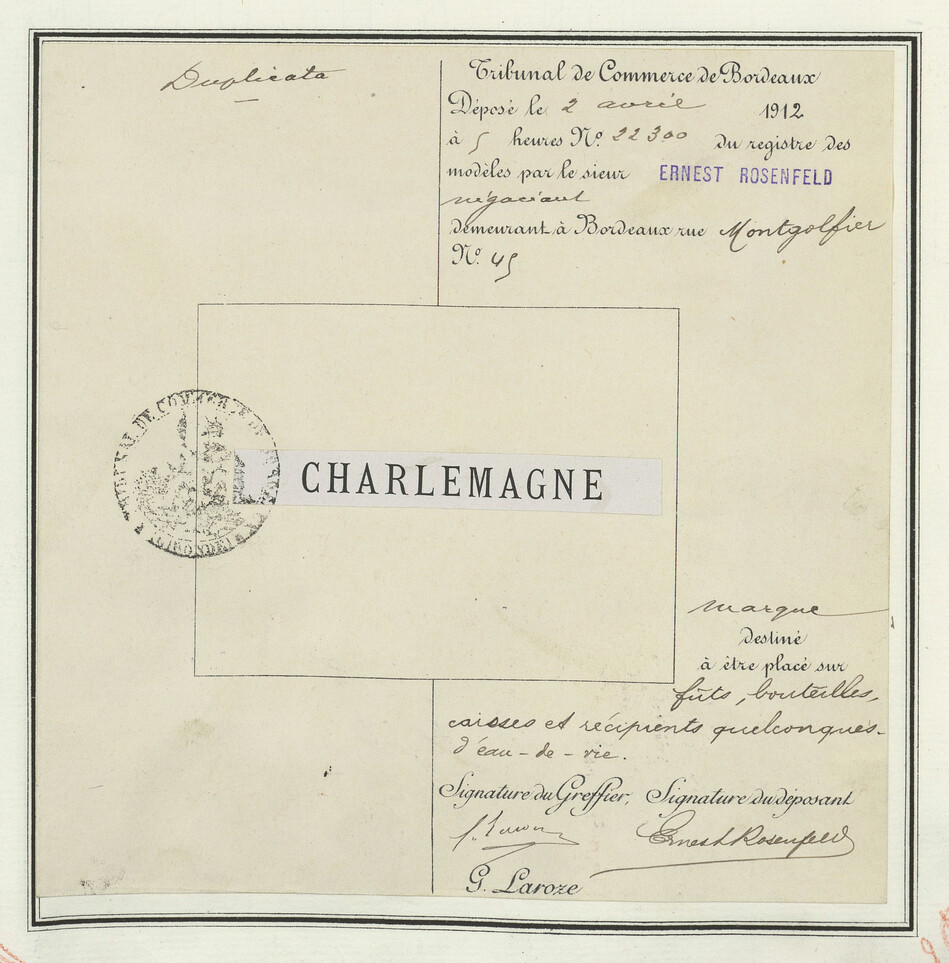 Duplicata
Tribunal de Commerce de Bordeaux
Déposé le 2 avril 1912
à 5 heures Nº 22300 du registre des
modèles par le sieur ERNEST ROSENFELD
négociant
demeurant à Bordeaux rue Montgolfier
Nº 45
TRIBUNAL DE COMMERCE DE
CHARLEMAGNE
(GIRONDE)
marque
destiné
à être placé sur
fûts, bouteilles,
caisses et récipients quelconques
d'eau-de-vie.
Signature du Greffier, Signature du déposant
Ernest Rosenfeld
G. Laroze